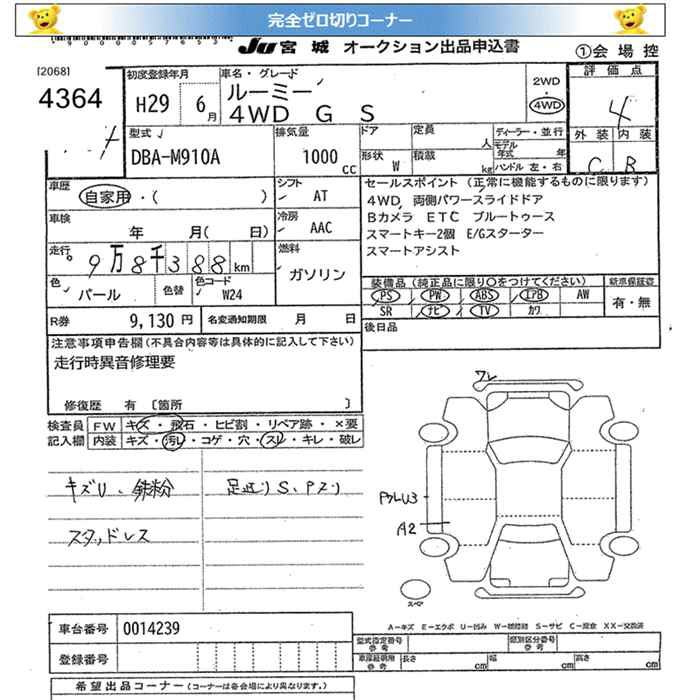 完全ゼロ切りコーナー
JU 宮城 オークション出品申込書
①会場控
[2068]
4364
初度登録年月
H29 6月
車名・グレード
ルーミー
4WD G S
2WD
・
4WD
評価点
4
外装 内装
C B
型式
DBA-M910A
排気量
1000 CC
ドア
定員 人
形状 W
積載 kg
ディーラー・並行
モデル 年
ハンドル 左・右
車歴
自家用・( )
シフト
AT
車検
年 月( 日)
冷房
AAC
走行
9万8千388km
燃料
ガソリン
色
パール
色替
色コード
W24
R券 9,130円
名変通知期限 月 日
セールスポイント (正常に機能するものに限ります)
4WD 両側パワースライドドア
Bカメラ ETC ブルートゥース
スマートキー2個 E/Gスターター
スマートアシスト
装備品 (純正品に限り○をつけてください)
新車保証書
PS PW ABS エアB AW
有・無
SR ナビ TV カワ
後日品
注意事項申告欄 (不具合内容等は具体的に記入して下さい)
走行時異音修理要
修復歴 有 [箇所 ]
検査員
記入欄
FW キズ・飛石・ヒビ割・リペア跡・×要
内装 キズ・汚レ・コゲ・穴・スレ・キレ・破レ
キズU、鉄粉
足廻りS、Pスリ
スタッドレス
ワレ
U3
A2
スペア
A−キズ E−エクボ U−凹み W−補修跡 S−サビ C−腐食 XX−交換済
車台番号 0014239
登録番号
型式指定番号
参考
類別区分番号
参考
車庫証明用
参考
長さ cm
幅 cm
高さ cm
希望出品コーナー (コーナーは各会場により異なります。)